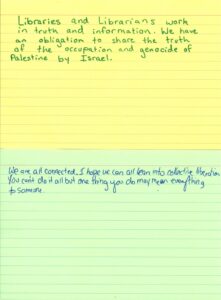 Libraries and Librarians work
in truth and information. We have
an obligation to share the truth
of the occupation and genocide of
Palestine by Israel.
We are all connected. I hope we can all lean into collective liberation
You can't do it all but one thing you do may mean everything
to someone.